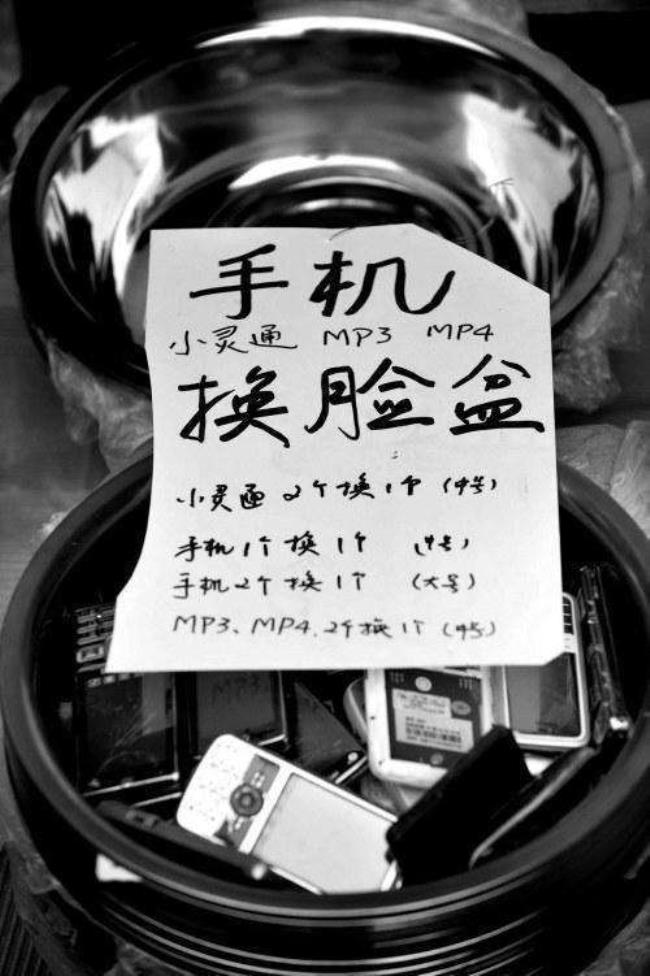 手机
小灵通 MP3 MP4
换脸盆
小灵通 2个换1个 (中号)
手机1个换1个 (中号)
手机2个换1个 (大号)
MP3、MP4.2个换1个 (中号)